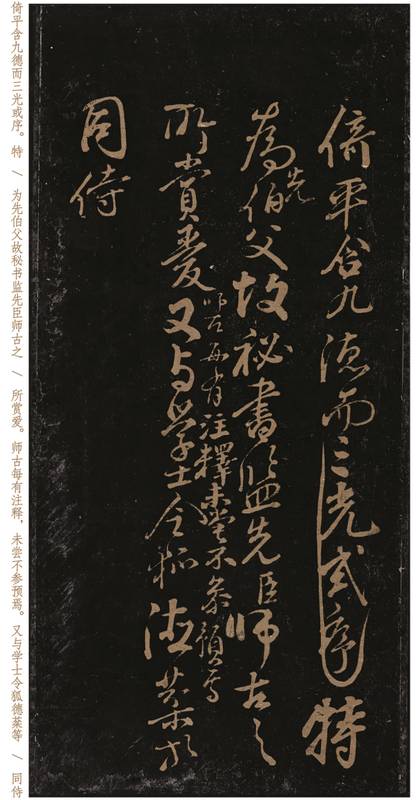 倚平含九德而三光式序特
為先伯父故秘書監先臣師古之
師古每有注釋未嘗不参預焉
所賞愛又与學士令狐德棻等
同侍
倚平含九德而三光或序。特 / 为先伯父故秘书监先臣师古之 / 所赏爱。师古每有注释，未尝不参预焉。又与学士令狐德棻等 / 同侍